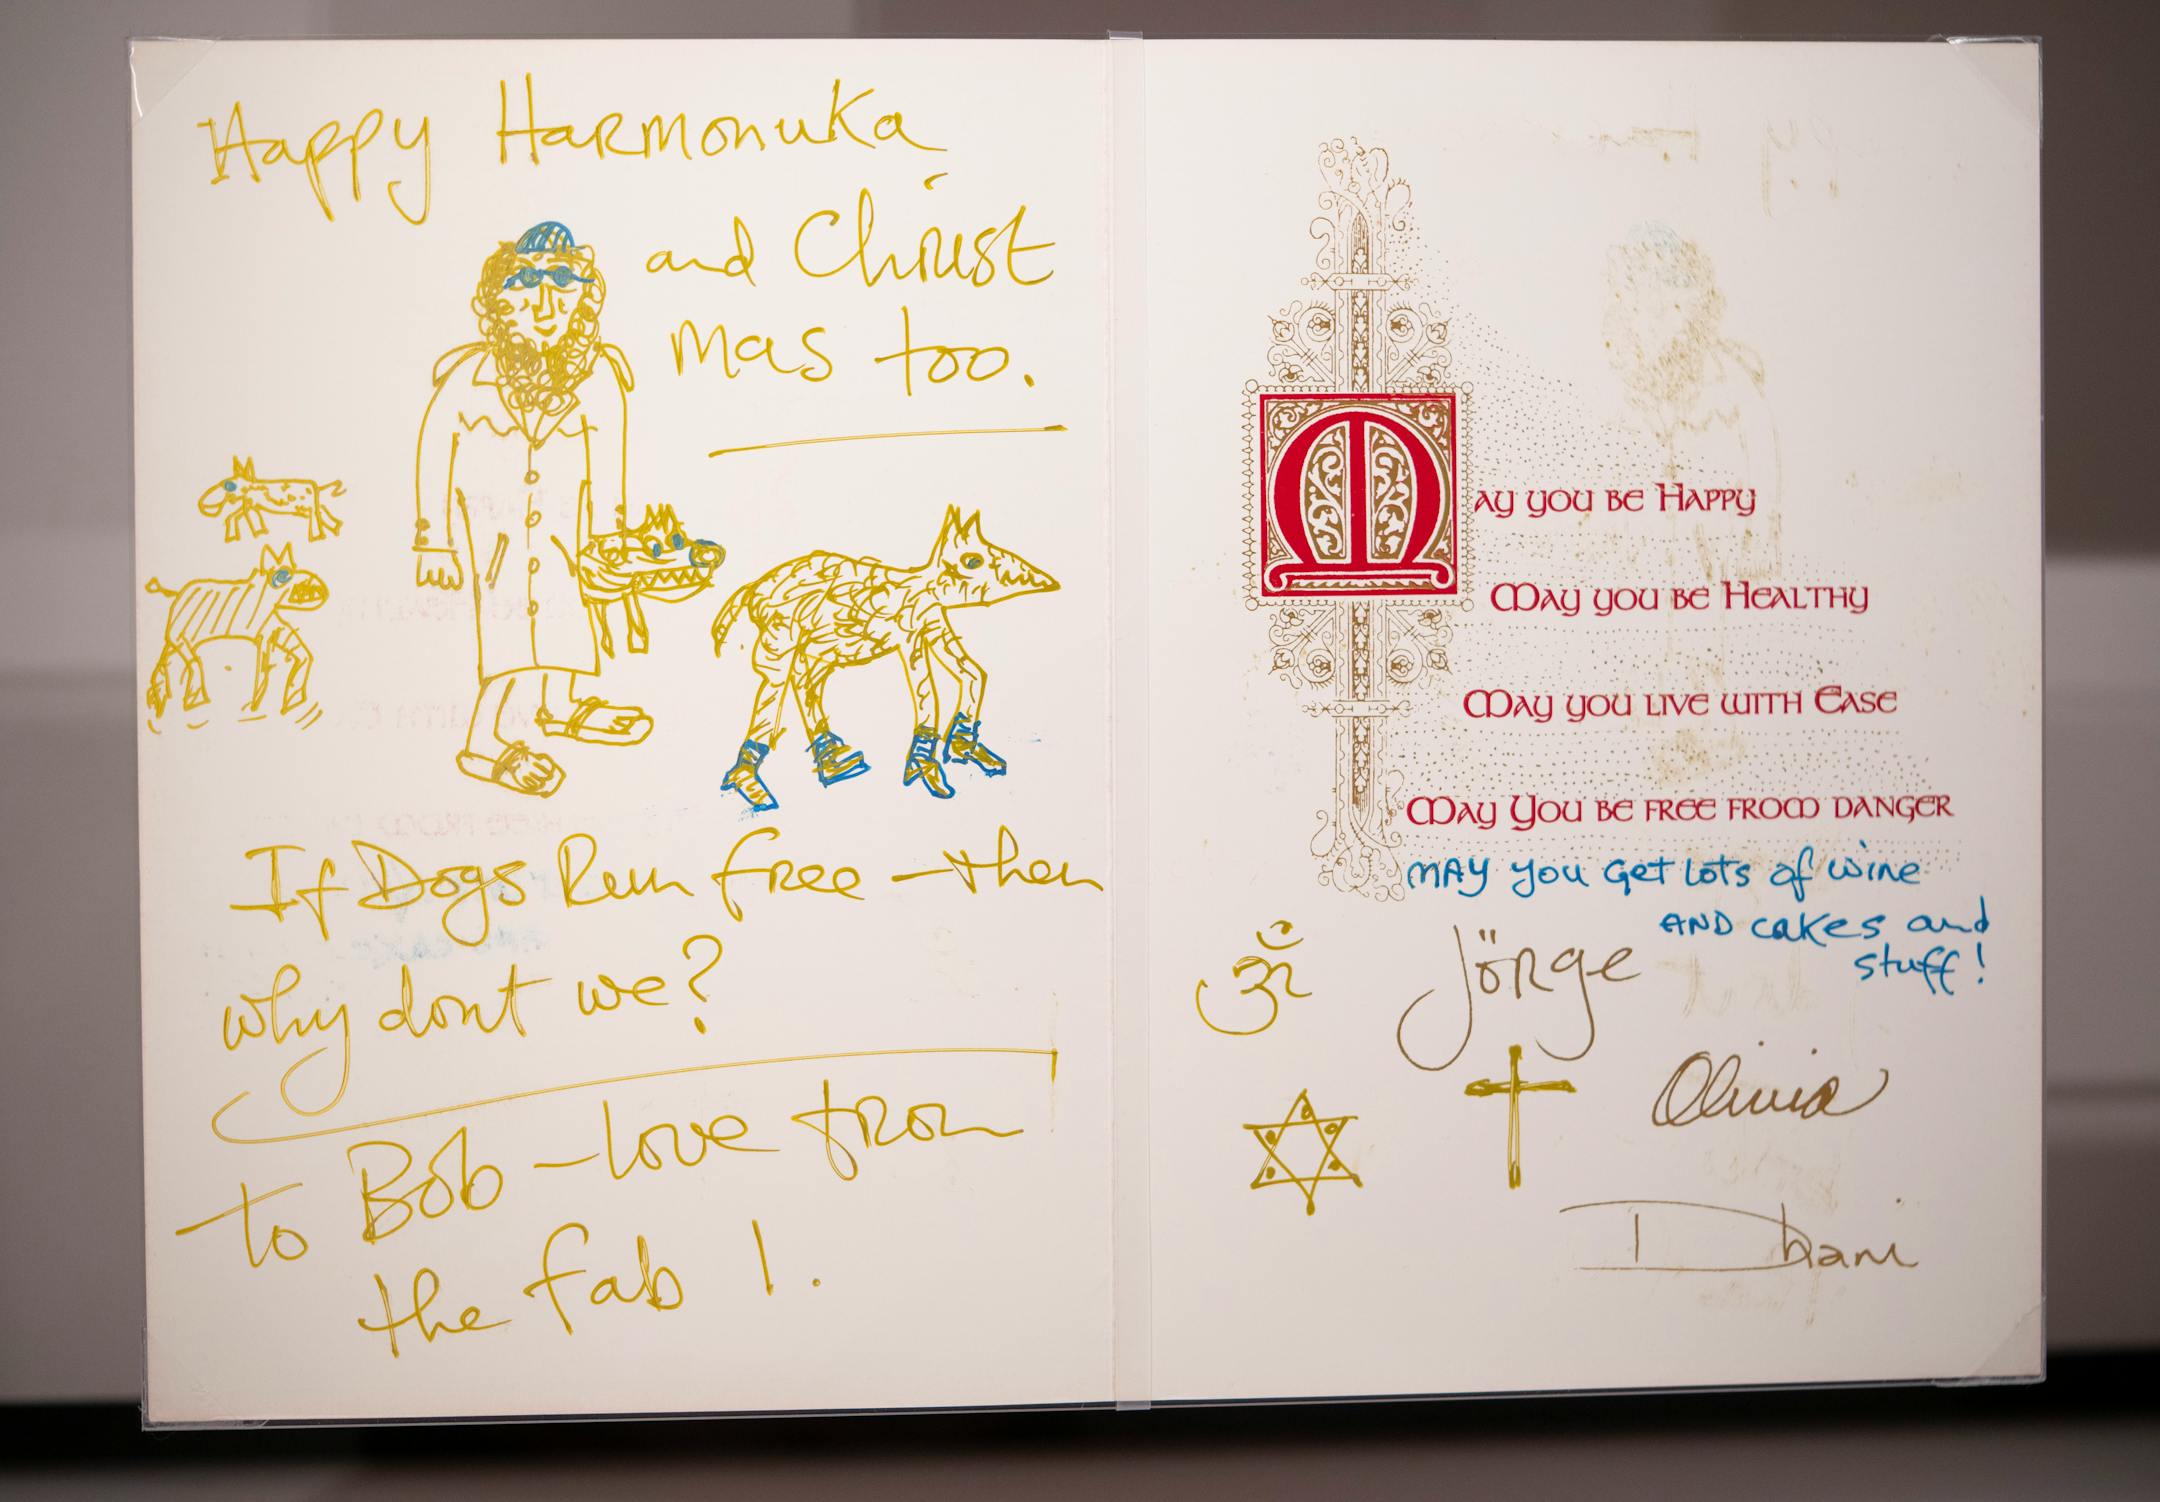 Happy Harmonuka
and Christ
mas too.
If Dogs Run free — then
why dont we?
to Bob — love from
the fab 1.
MAY YOU BE HAPPY
MAY YOU BE HEALTHY
MAY YOU LIVE WITH EASE
MAY YOU BE FREE FROM DANGER
MAY YOU Get Lots of wine
AND cakes and
stuff!
ॐ
Jörge
Olivia
Dhani